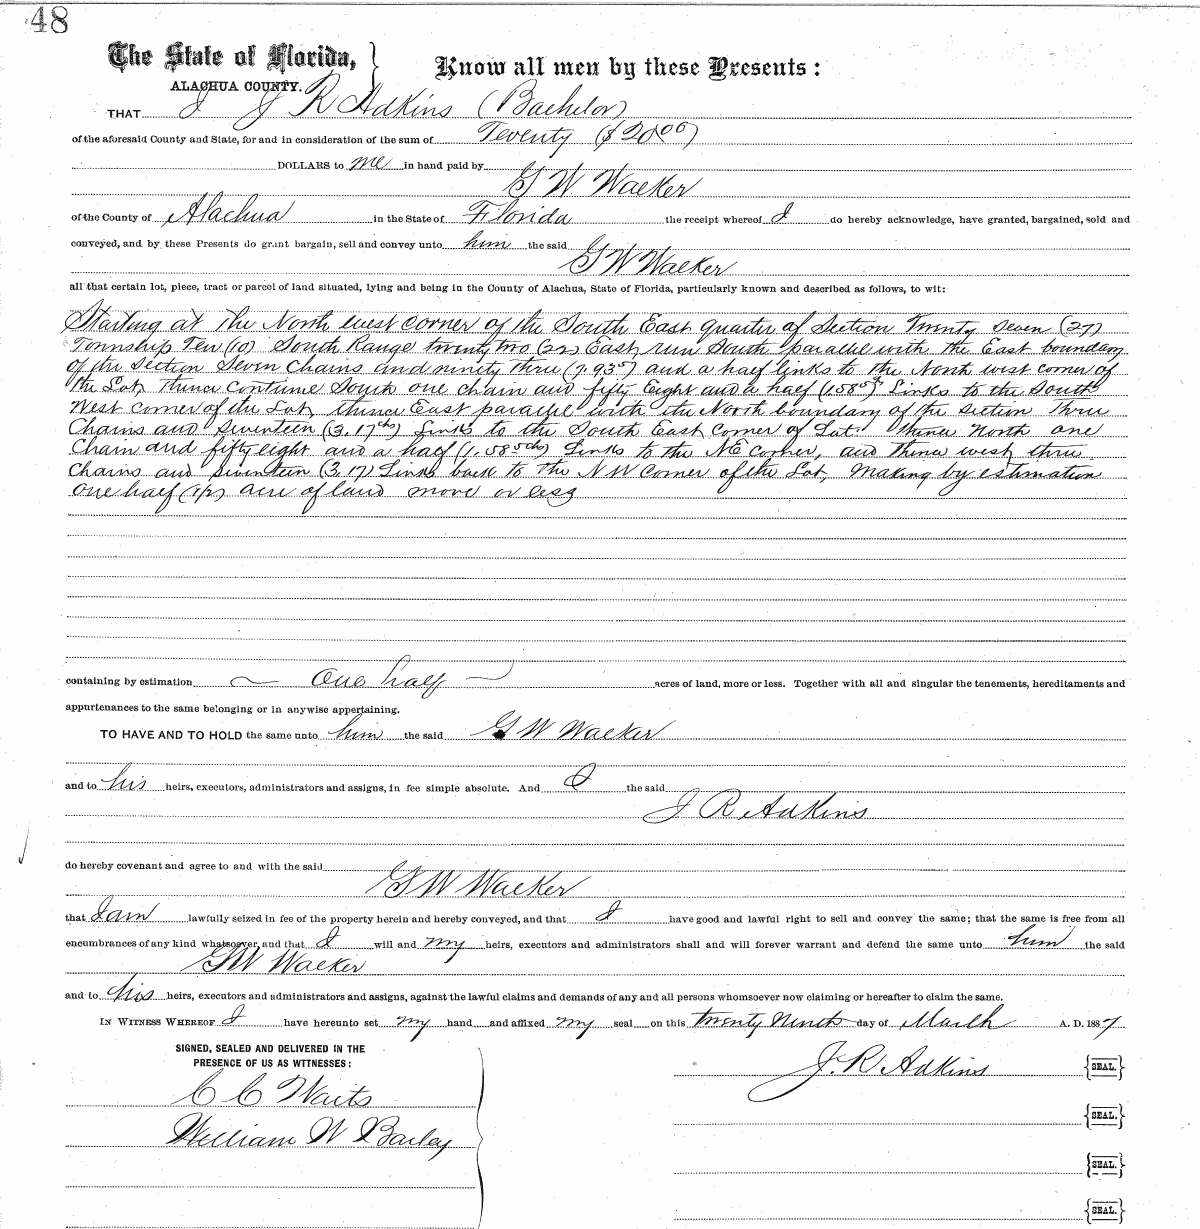 48
The State of Florida, } Know all men by these Presents:
ALACHUA COUNTY.
THAT I J R Adkins (Bachelor)
of the aforesaid County and State, for and in consideration of the sum of Twenty ($20.00)
DOLLARS to me in hand paid by
G W Walker
of the County of Alachua in the State of Florida the receipt whereof I do hereby acknowledge, have granted, bargained, sold and
conveyed, and by these Presents do grant bargain, sell and convey unto him the said
G W Walker
all that certain lot, piece, tract or parcel of land situated, lying and being in the County of Alachua, State of Florida, particularly known and described as follows, to wit:
Starting at the North west corner of the South East quarter of Section Twenty Seven (27)
Township Ten (10) South Range twenty two (22) East, run South parallel with the East boundary
of the Section Seven Chains and ninety three (7.935) and a half links to the North west corner of
the Lot, Thence Continue South one chain and fifty Eight and a half (1.585 Links to the South
West corner of the Lot, thence East parallel with the North boundary of the section Three
Chains and Seventeen (3.17 chs) Links to the South East Corner of Lot. thence North one
Chain and fifty eight and a half (1.585 chs) Links to the NE Corner, and thence west three
Chains and seventeen (3.17) Links back to the N W Corner of the Lot, Making by estimation
one half (1/2) acre of land more or less
containing by estimation One half acres of land, more or less. Together with all and singular the tenements, hereditaments and
appurtenances to the same belonging or in anywise appertaining.
TO HAVE AND TO HOLD the same unto him the said G W Walker
and to his heirs, executors, administrators and assigns, in fee simple absolute. And I the said
J R Adkins
do hereby covenant and agree to and with the said
G W Walker
that I am lawfully seized in fee of the property herein and hereby conveyed, and that I have good and lawful right to sell and convey the same; that the same is free from all
encumbrances of any kind whatsoever, and that I will and my heirs, executors and administrators shall and will forever warrant and defend the same unto him the said
G W Walker
and to his heirs, executors and administrators and assigns, against the lawful claims and demands of any and all persons whomsoever now claiming or hereafter to claim the same.
IN WITNESS WHEREOF I have hereunto set my hand and affixed my seal on this twenty Ninth day of March A. D. 1887
SIGNED, SEALED AND DELIVERED IN THE
PRESENCE OF US AS WITNESSES:
J. R. Adkins {SEAL.}
C C Waits
{SEAL.}
William W Bailey
{SEAL.}
{SEAL.}